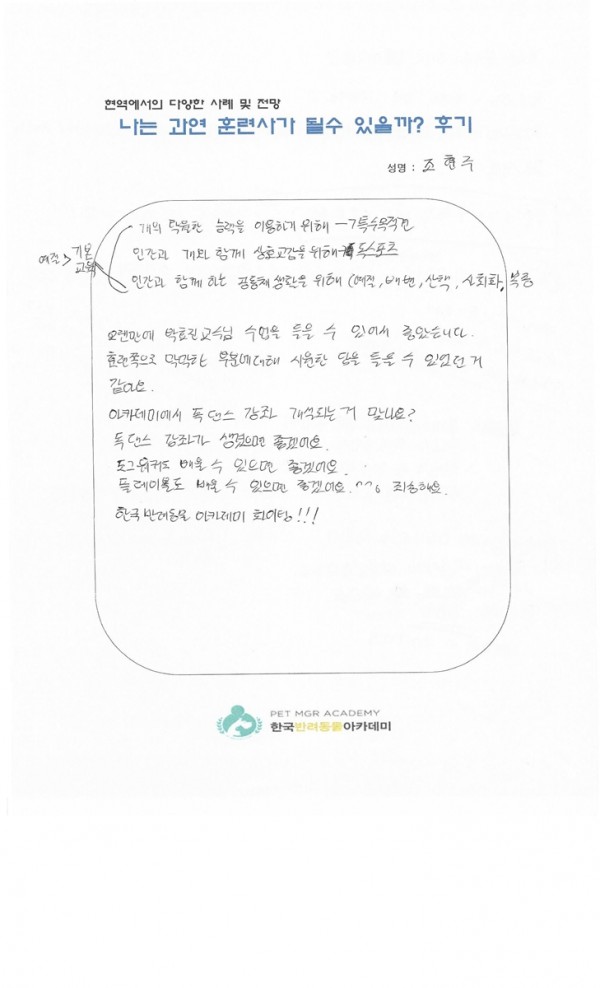 현역에서의 다양한 사례 및 전망
나는 과연 훈련사가 될수 있을까? 후기
성명 : 조현주
개의 탁월한 능력을 이용하기 위해 → 특수목적견
인간과 개의 함께 상호교감을 위해 → 독스포츠
예절 > 기본교육
인간과 함께 하는 공동체 생활을 위해 (예절, 배변, 산책, 사회화, 복종
오랜만에 박효진교수님 수업을 들을 수 있어서 좋았습니다.
훈련쪽으로 막막하는 부분에대해 시원한 답을 들을 수 있었던 거
같아요.
아카데미에서 독 댄스 강좌 개석되는 거 맞나요?
독 댄스 강좌가 생겼으면 좋겠어요.
도그워커도 배울 수 있으면 좋겠어요.
플레이볼도 배울 수 있으면 좋겠어요. ^^; 죄송해요.
한국반려동물 아카데미 화이팅!!!
PET MGR ACADEMY
한국반려동물아카데미